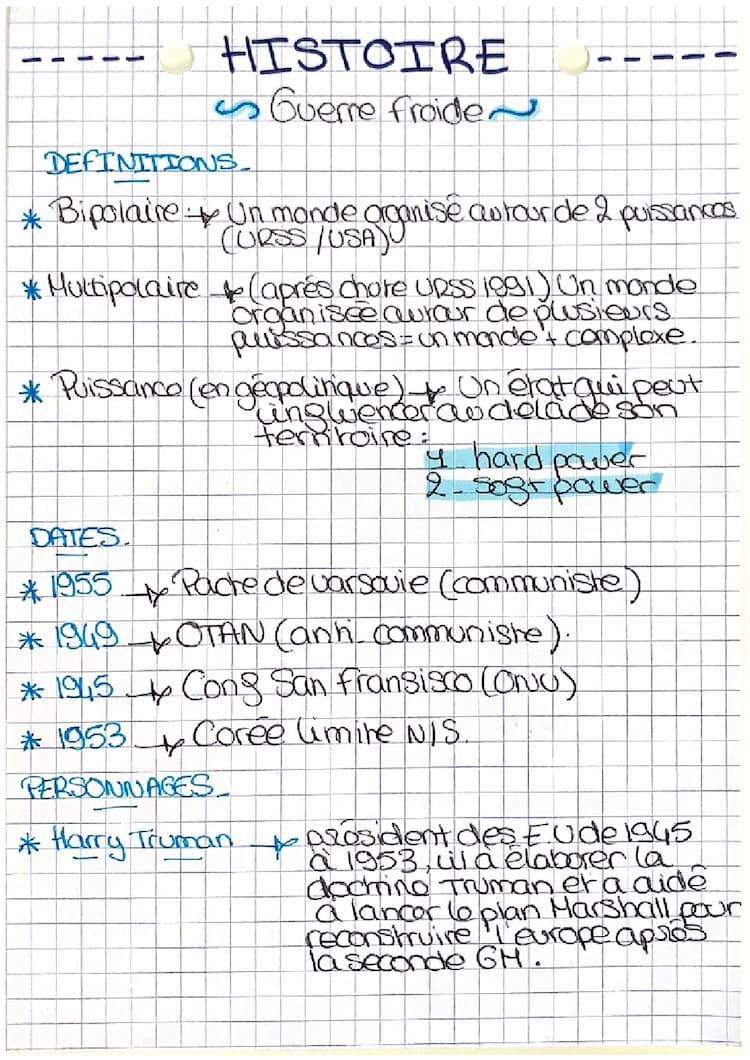 HISTOIRE
Guerre froide
DEFINITIONS
* Bipolaire : → Un monde organisé autour de 2 puissances
(URSS / USA)
* Multipolaire → (après chute URSS 1991) Un monde
organisée autour de plusieurs
puissances = un monde + complexe.
* Puissance (en géopolitique) → Un état qui peut
influencer au delà de son
territoire :
1 - hard power
2 - soft power
DATES.
* 1955 → Pacte de varsovie (communiste)
* 1949 → OTAN (anti-communiste).
* 1945 → Conf San Fransisco (ONU)
* 1953 → Corée limite N/S.
PERSONNAGES
* Harry Truman → président des EU de 1945
à 1953, il a élaborer la
doctrine Truman et a aidé
à lancer le plan Marshall pour
reconstruire l'europe après
la seconde GM.